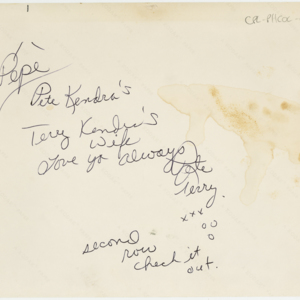 Pepè
Pete Kendra's
Terry Kendra's
Wife
Love ya always
Pete
Terry.
xxx
oo
o
second
row
check it
out.